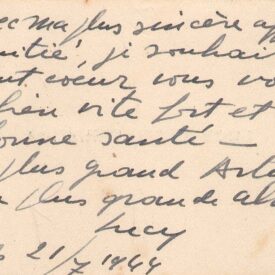 ec ma plus sincère
itié, je souhai
nt coeur vous vo
bien vite fort et
bonne santé —
plus grand
plus grande
Lucy
21/7 1944